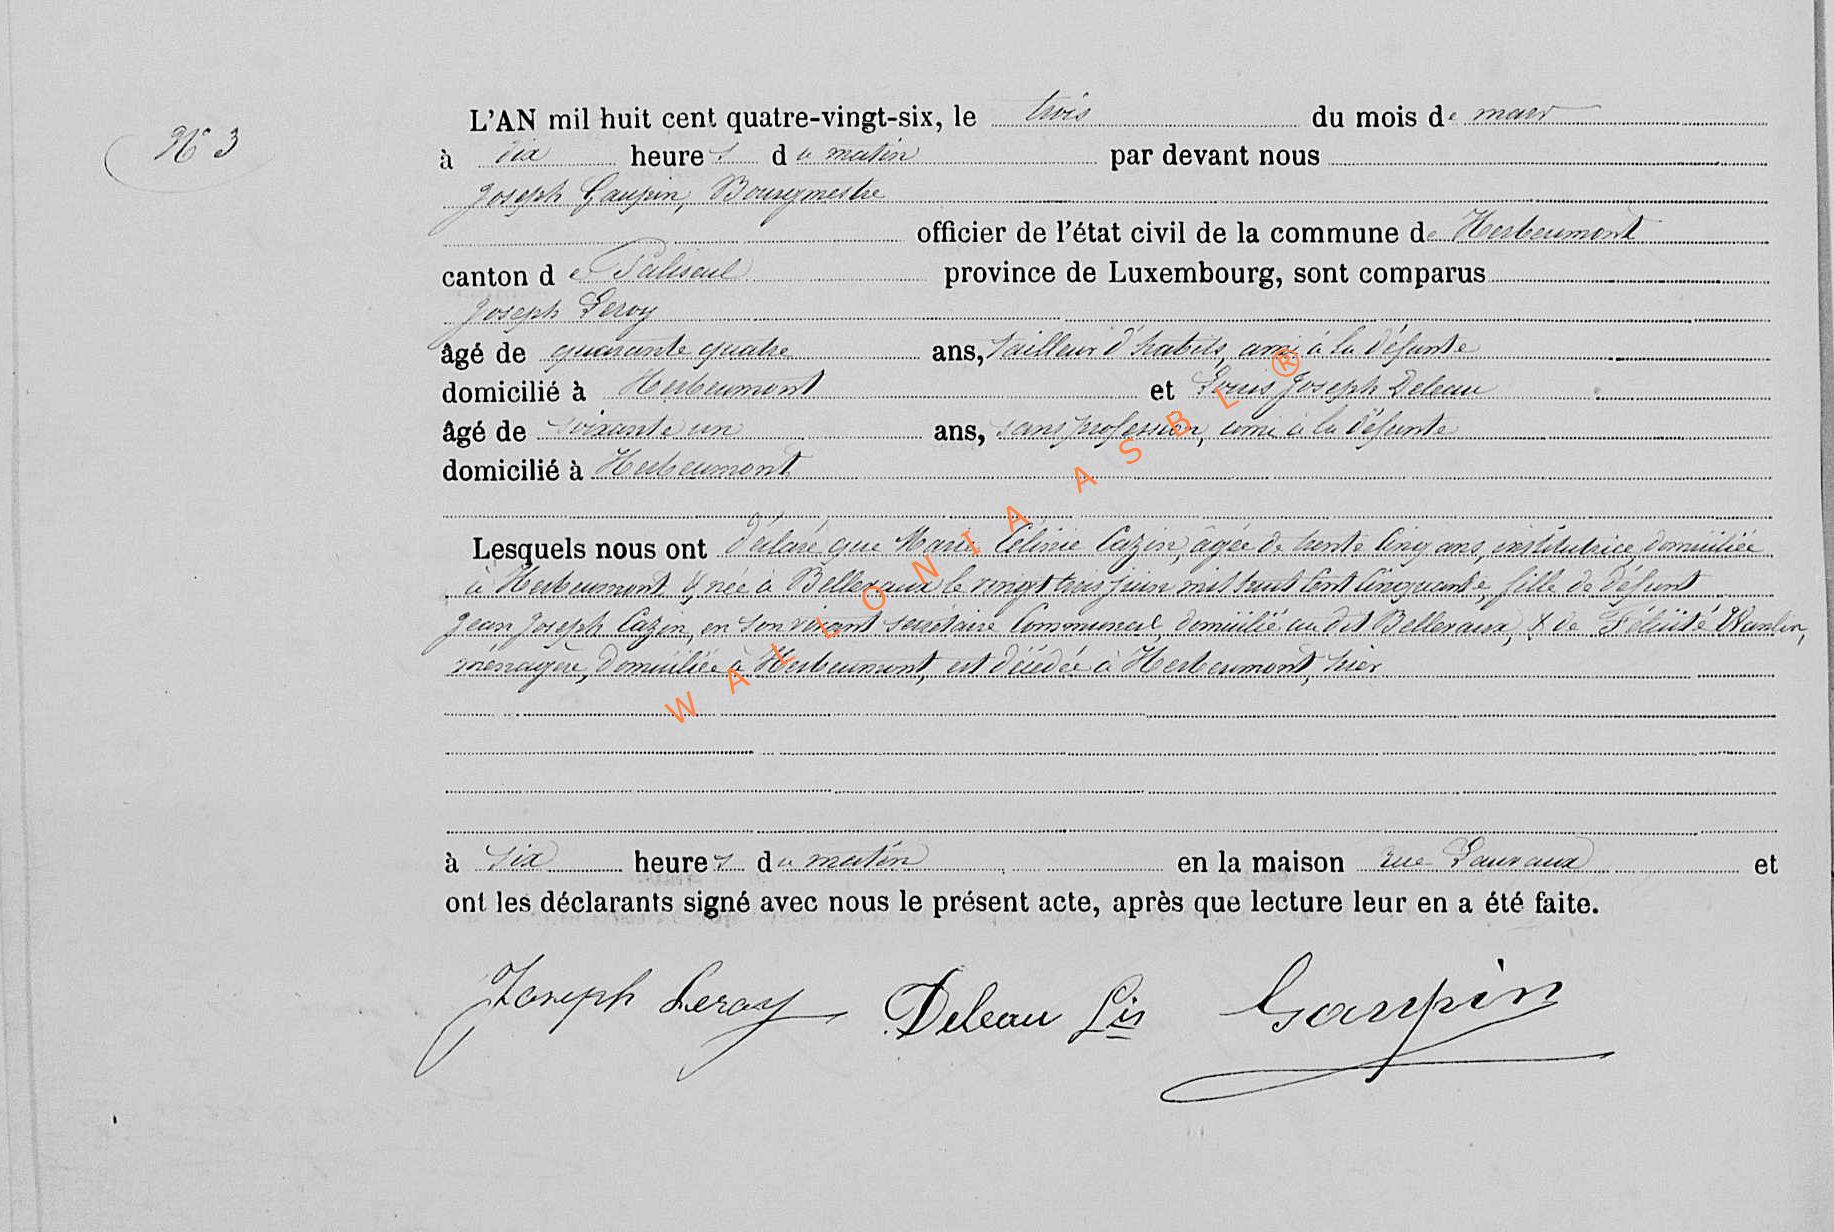 N° 3
L'AN mil huit cent quatre-vingt-six, le trois du mois de mars
à dix heures du matin par devant nous
Joseph Gaupin, Bourgmestre
officier de l'état civil de la commune de Herbeumont
canton de Paliseul province de Luxembourg, sont comparus
Joseph Leroy
âgé de quarante quatre ans, tailleur d'habits, ami à la défunte
domicilié à Herbeumont et Louis Joseph Deleau
âgé de soixante un ans, sans profession, ami à la défunte
domicilié à Herbeumont
Lesquels nous ont déclaré que Marie Célinie Cazin, âgée de trente cinq ans, institutrice, domiciliée
à Herbeumont & née à Bellevaux le vingt trois juin mil huit cent cinquante, fille de défunt
Jean Joseph Cazin, en son vivant secrétaire communal, domicilié au dit Bellevaux, & de Félicité
ménagère, domiciliée à Herbeumont, est décédée à Herbeumont, hier
à six heures du matin en la maison rue et
ont les déclarants signé avec nous le présent acte, après que lecture leur en a été faite.
Joseph Leroy Deleau Lis Gaupin
WALLONIA ASBL ®